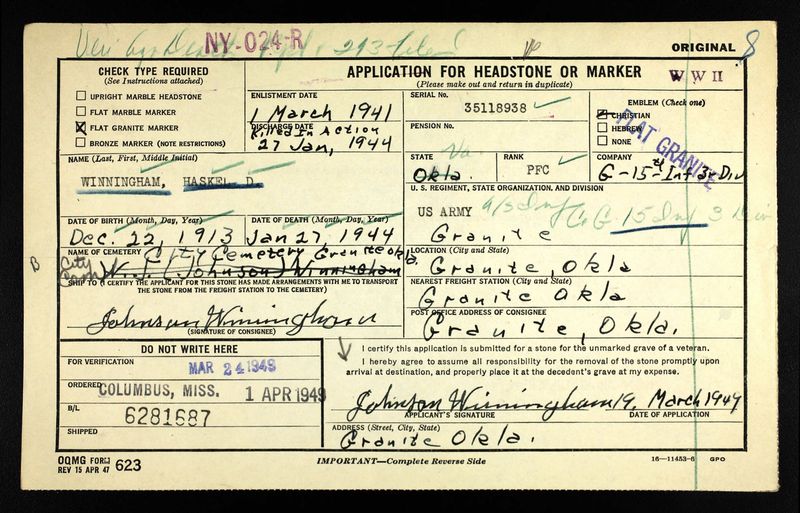 NY-024-R
ORIGINAL 8
CHECK TYPE REQUIRED
(See Instructions attached)
UPRIGHT MARBLE HEADSTONE
FLAT MARBLE MARKER
X FLAT GRANITE MARKER
BRONZE MARKER (NOTE RESTRICTIONS)
APPLICATION FOR HEADSTONE OR MARKER
(Please make out and return in duplicate)
WWII
ENLISTMENT DATE
1 March 1941
DISCHARGE DATE
Killed In Action
27 Jan, 1944
SERIAL No.
35118938
PENSION No.
EMBLEM (Check one)
CHRISTIAN
HEBREW
NONE
FLAT GRANITE
NAME (Last, First, Middle Initial)
WINNINGHAM, HASKEL D
STATE
Okla.
RANK
PFC
COMPANY
G-15th Inf 3r Div
U. S. REGIMENT, STATE ORGANIZATION, AND DIVISION
US ARMY
15 Inf 3 Div
Granite
DATE OF BIRTH (Month, Day, Year)
Dec. 22, 1913
DATE OF DEATH (Month, Day, Year)
Jan 27, 1944
NAME OF CEMETERY
City Cemetery Granite Okla.
(Johnson) Winningham
B
City
LOCATION (City and State)
Granite, Okla
SHIP TO (I CERTIFY THE APPLICANT FOR THIS STONE HAS MADE ARRANGEMENTS WITH ME TO TRANSPORT
THE STONE FROM THE FREIGHT STATION TO THE CEMETERY)
NEAREST FREIGHT STATION (City and State)
Granite Okla
Johnson Winningham
(SIGNATURE OF CONSIGNEE)
POST OFFICE ADDRESS OF CONSIGNEE
Granite, Okla.
DO NOT WRITE HERE
FOR VERIFICATION
MAR 24 1949
ORDERED
COLUMBUS, MISS. 1 APR 1949
B/L
6281687
SHIPPED
I certify this application is submitted for a stone for the unmarked grave of a veteran.
I hereby agree to assume all responsibility for the removal of the stone promptly upon
arrival at destination, and properly place it at the decedent's grave at my expense.
Johnson Winningham 19, March 1949
APPLICANT'S SIGNATURE
DATE OF APPLICATION
ADDRESS (Street, City, State)
Granite Okla.
OQMG FORM
REV 15 APR 47 623
IMPORTANT—Complete Reverse Side
16—11453-6 GPO